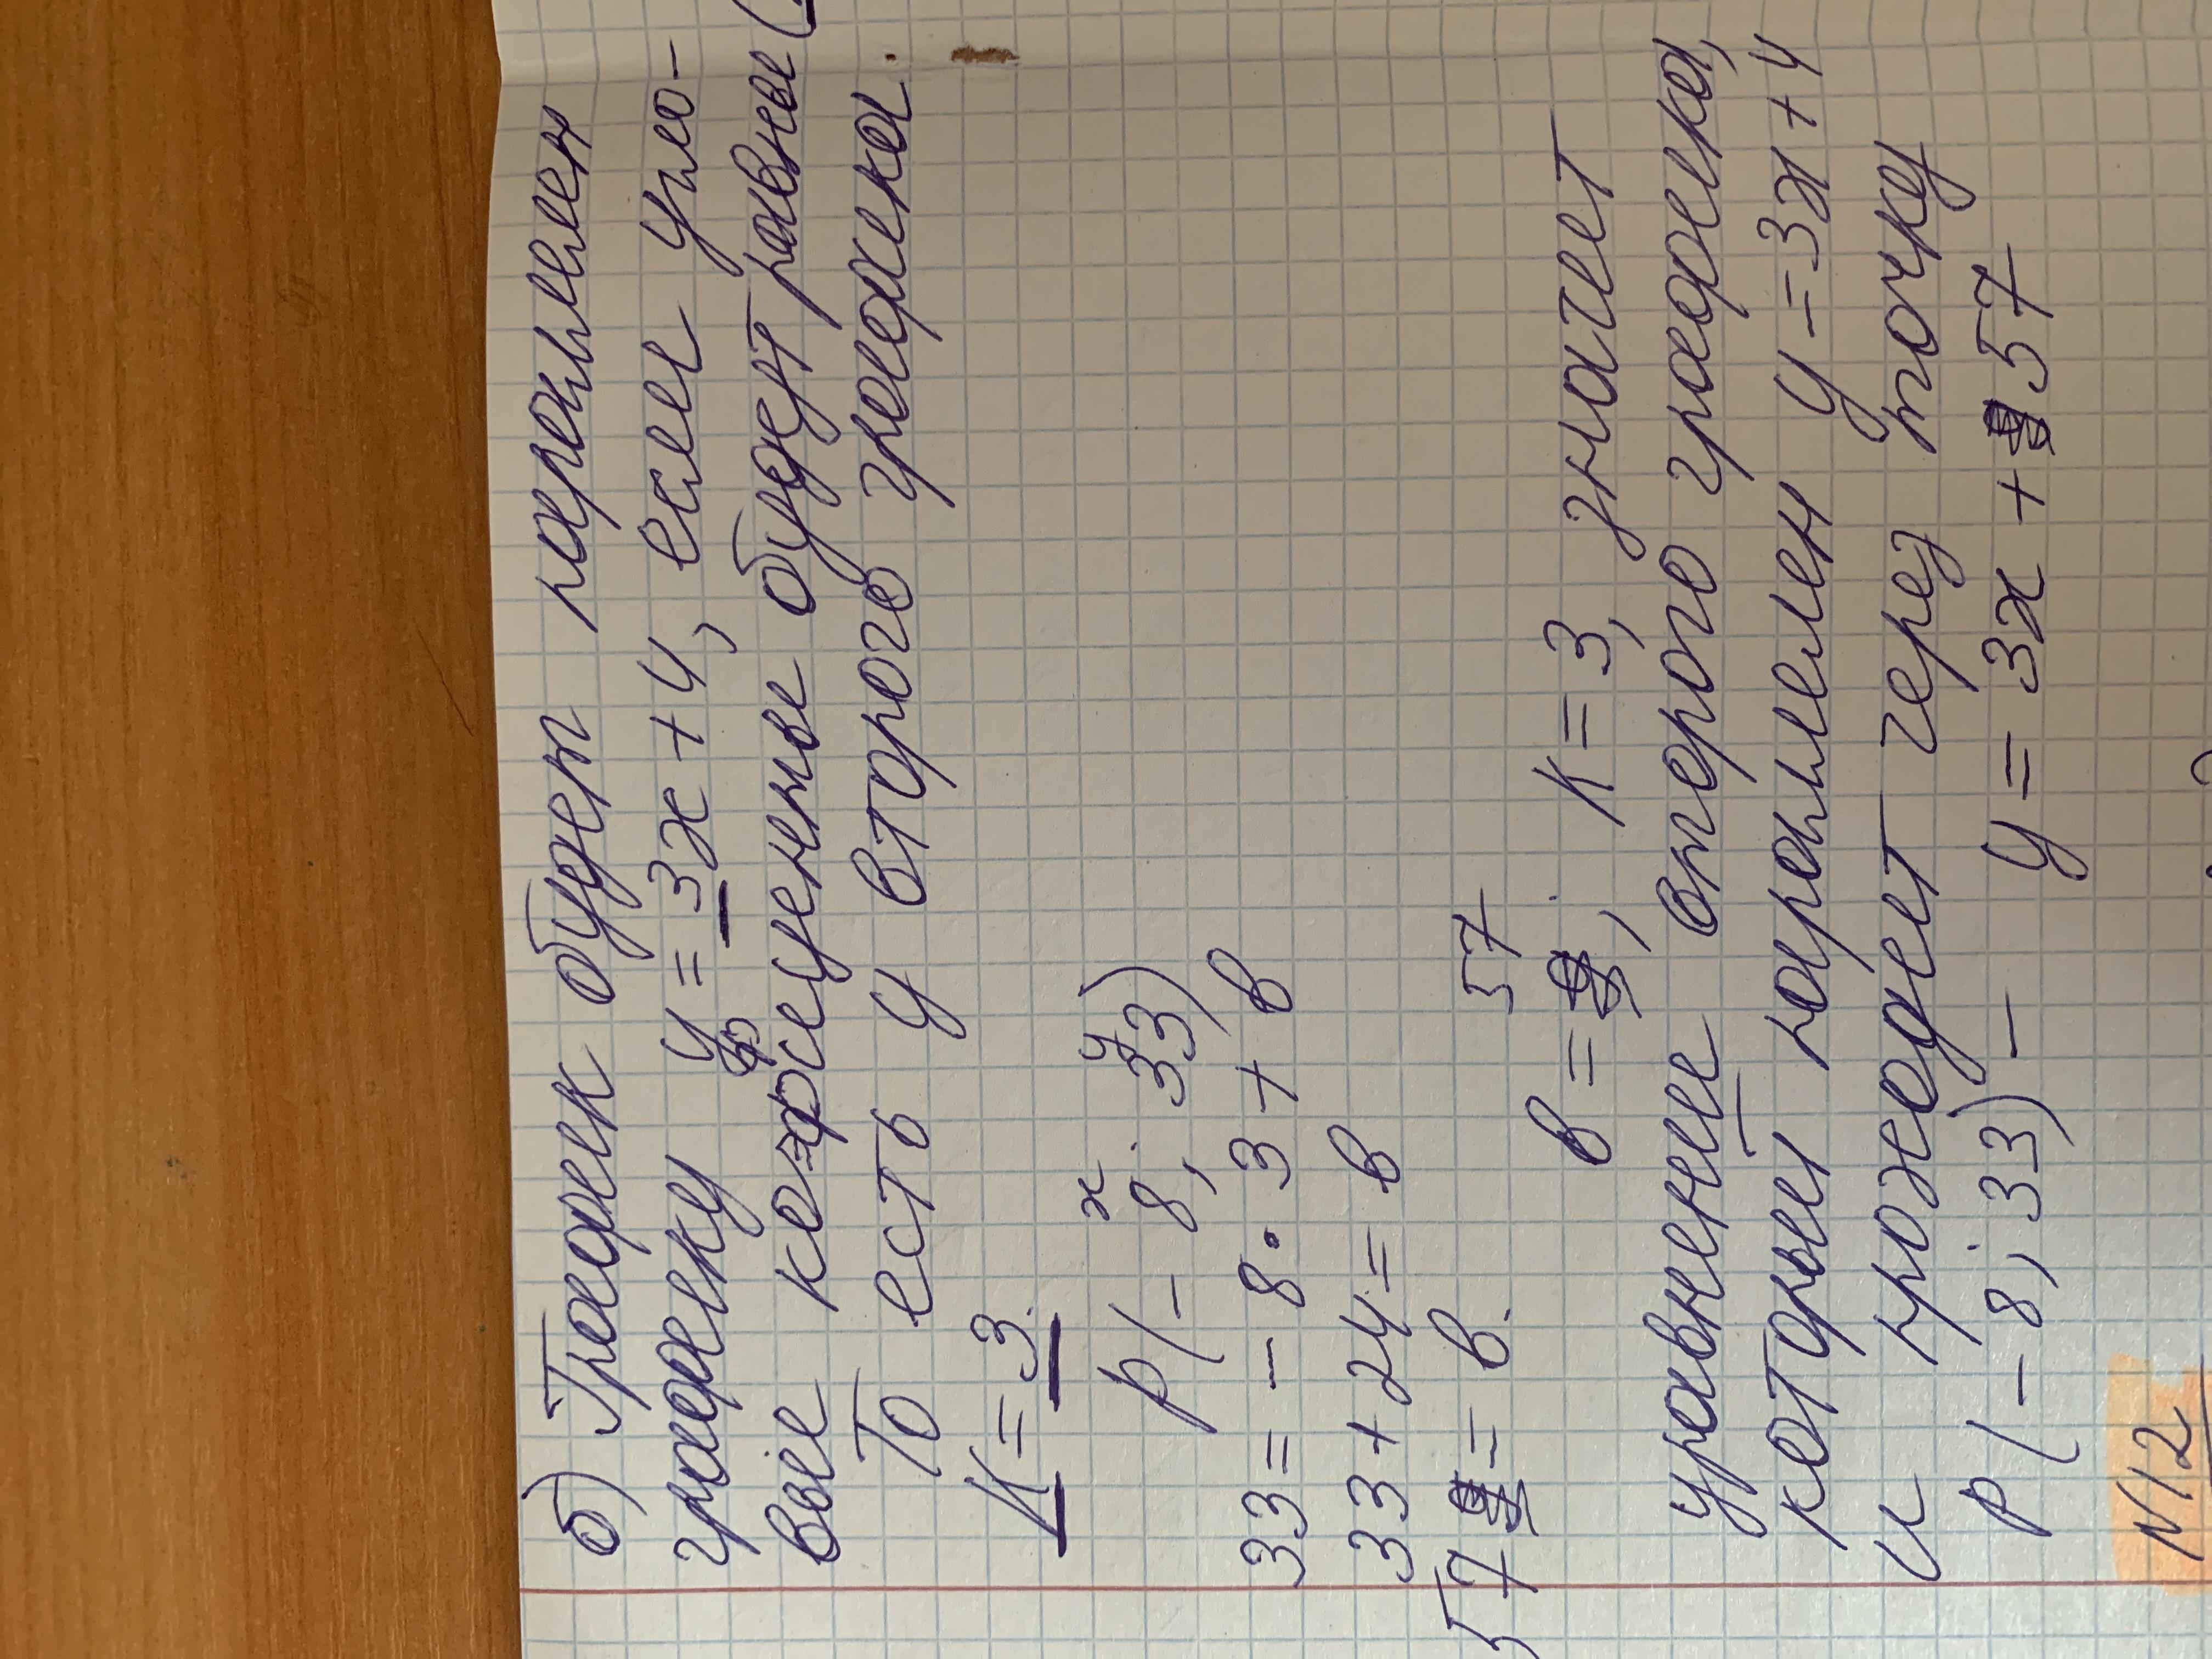 б) График будет параллелен
графику у = 3х + 4, если угло-
вые коэффициенты будут равны (
То есть у второго графика
К = 3.
х у
р (– 8; 33)
33 = – 8 · 3 + в
33 + 24 = в
57 = в.
в = 57; К = 3, значит
уравнение второго графика,
который параллелен у = 3х + 4
и проходит через точку
р (– 8; 33) – у = 3х + 57
N12